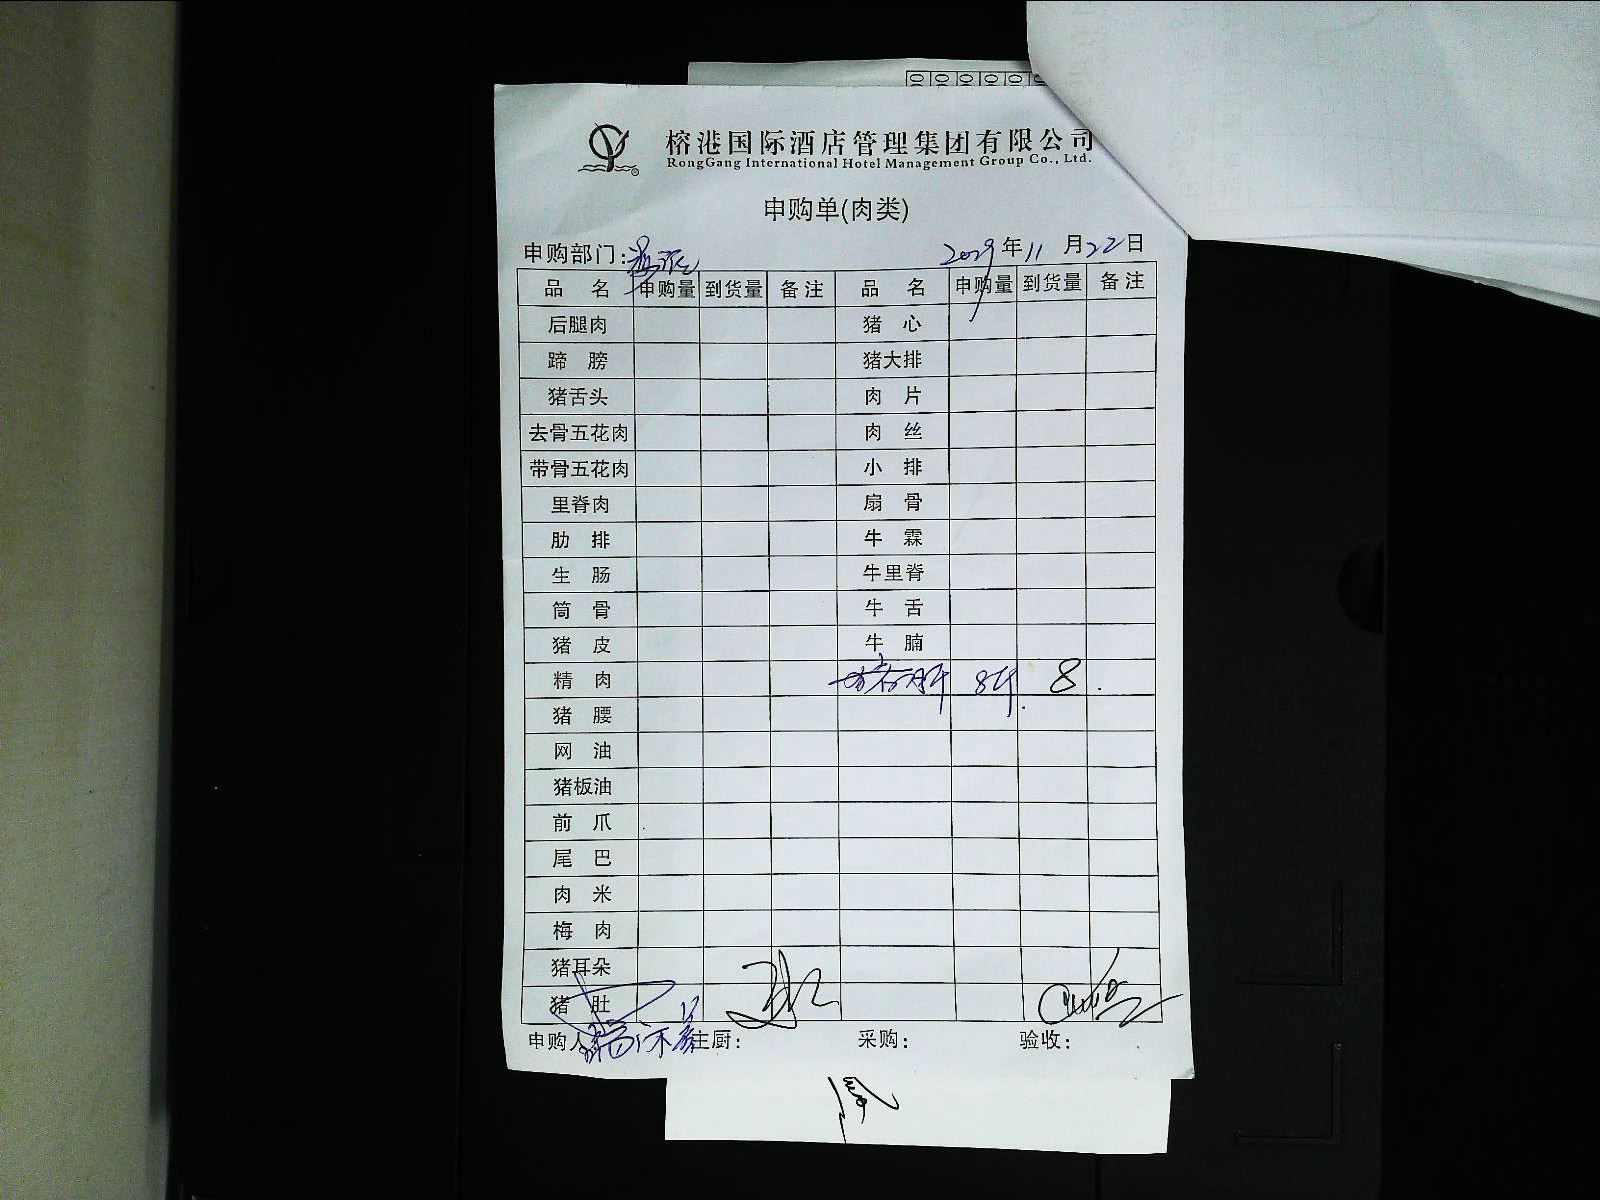 000000
榕港国际酒店管理集团有限公司
RongGang International Hotel Management Group Co., Ltd.
申购单(肉类)
申购部门: 年11月22日
品 名 申购量 到货量 备注 品 名 申购量 到货量 备注
后腿肉 猪 心
蹄 膀 猪大排
猪舌头 肉 片
去骨五花肉 肉 丝
带骨五花肉 小 排
里脊肉 扇 骨
肋 排 牛 霖
生 肠 牛里脊
筒 骨 牛 舌
猪 皮 牛 腩
精 肉 猪肝 8斤 8
猪 腰
网 油
猪板油
前 爪
尾 巴
肉 米
梅 肉
猪耳朵
猪 肚
申购人 主厨: 采购: 验收: